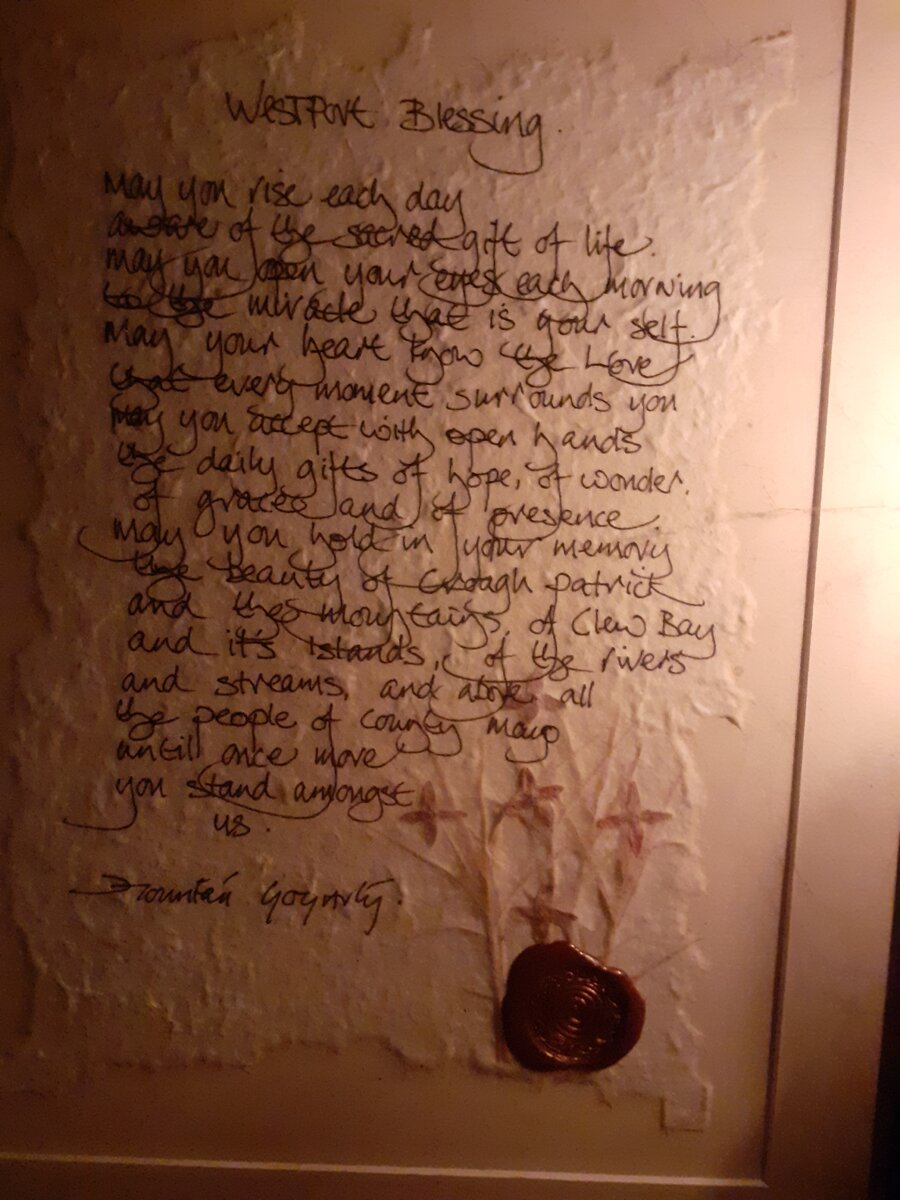 WestPort Blessing.
May you rise each day
aware of the sacred gift of life.
May you open your eyes each morning
to the miracle that is your self.
May your heart know the Love
that every moment surrounds you
May you accept with open hands
the daily gifts of hope, of wonder.
of grace and of presence.
May you hold in your memory
the beauty of Croagh patrick
and the mountains, of Clew Bay
and it's Islands, of the rivers
and streams, and above all
the people of county mayo
untill once more
you stand amongst
us.
Gogarty.